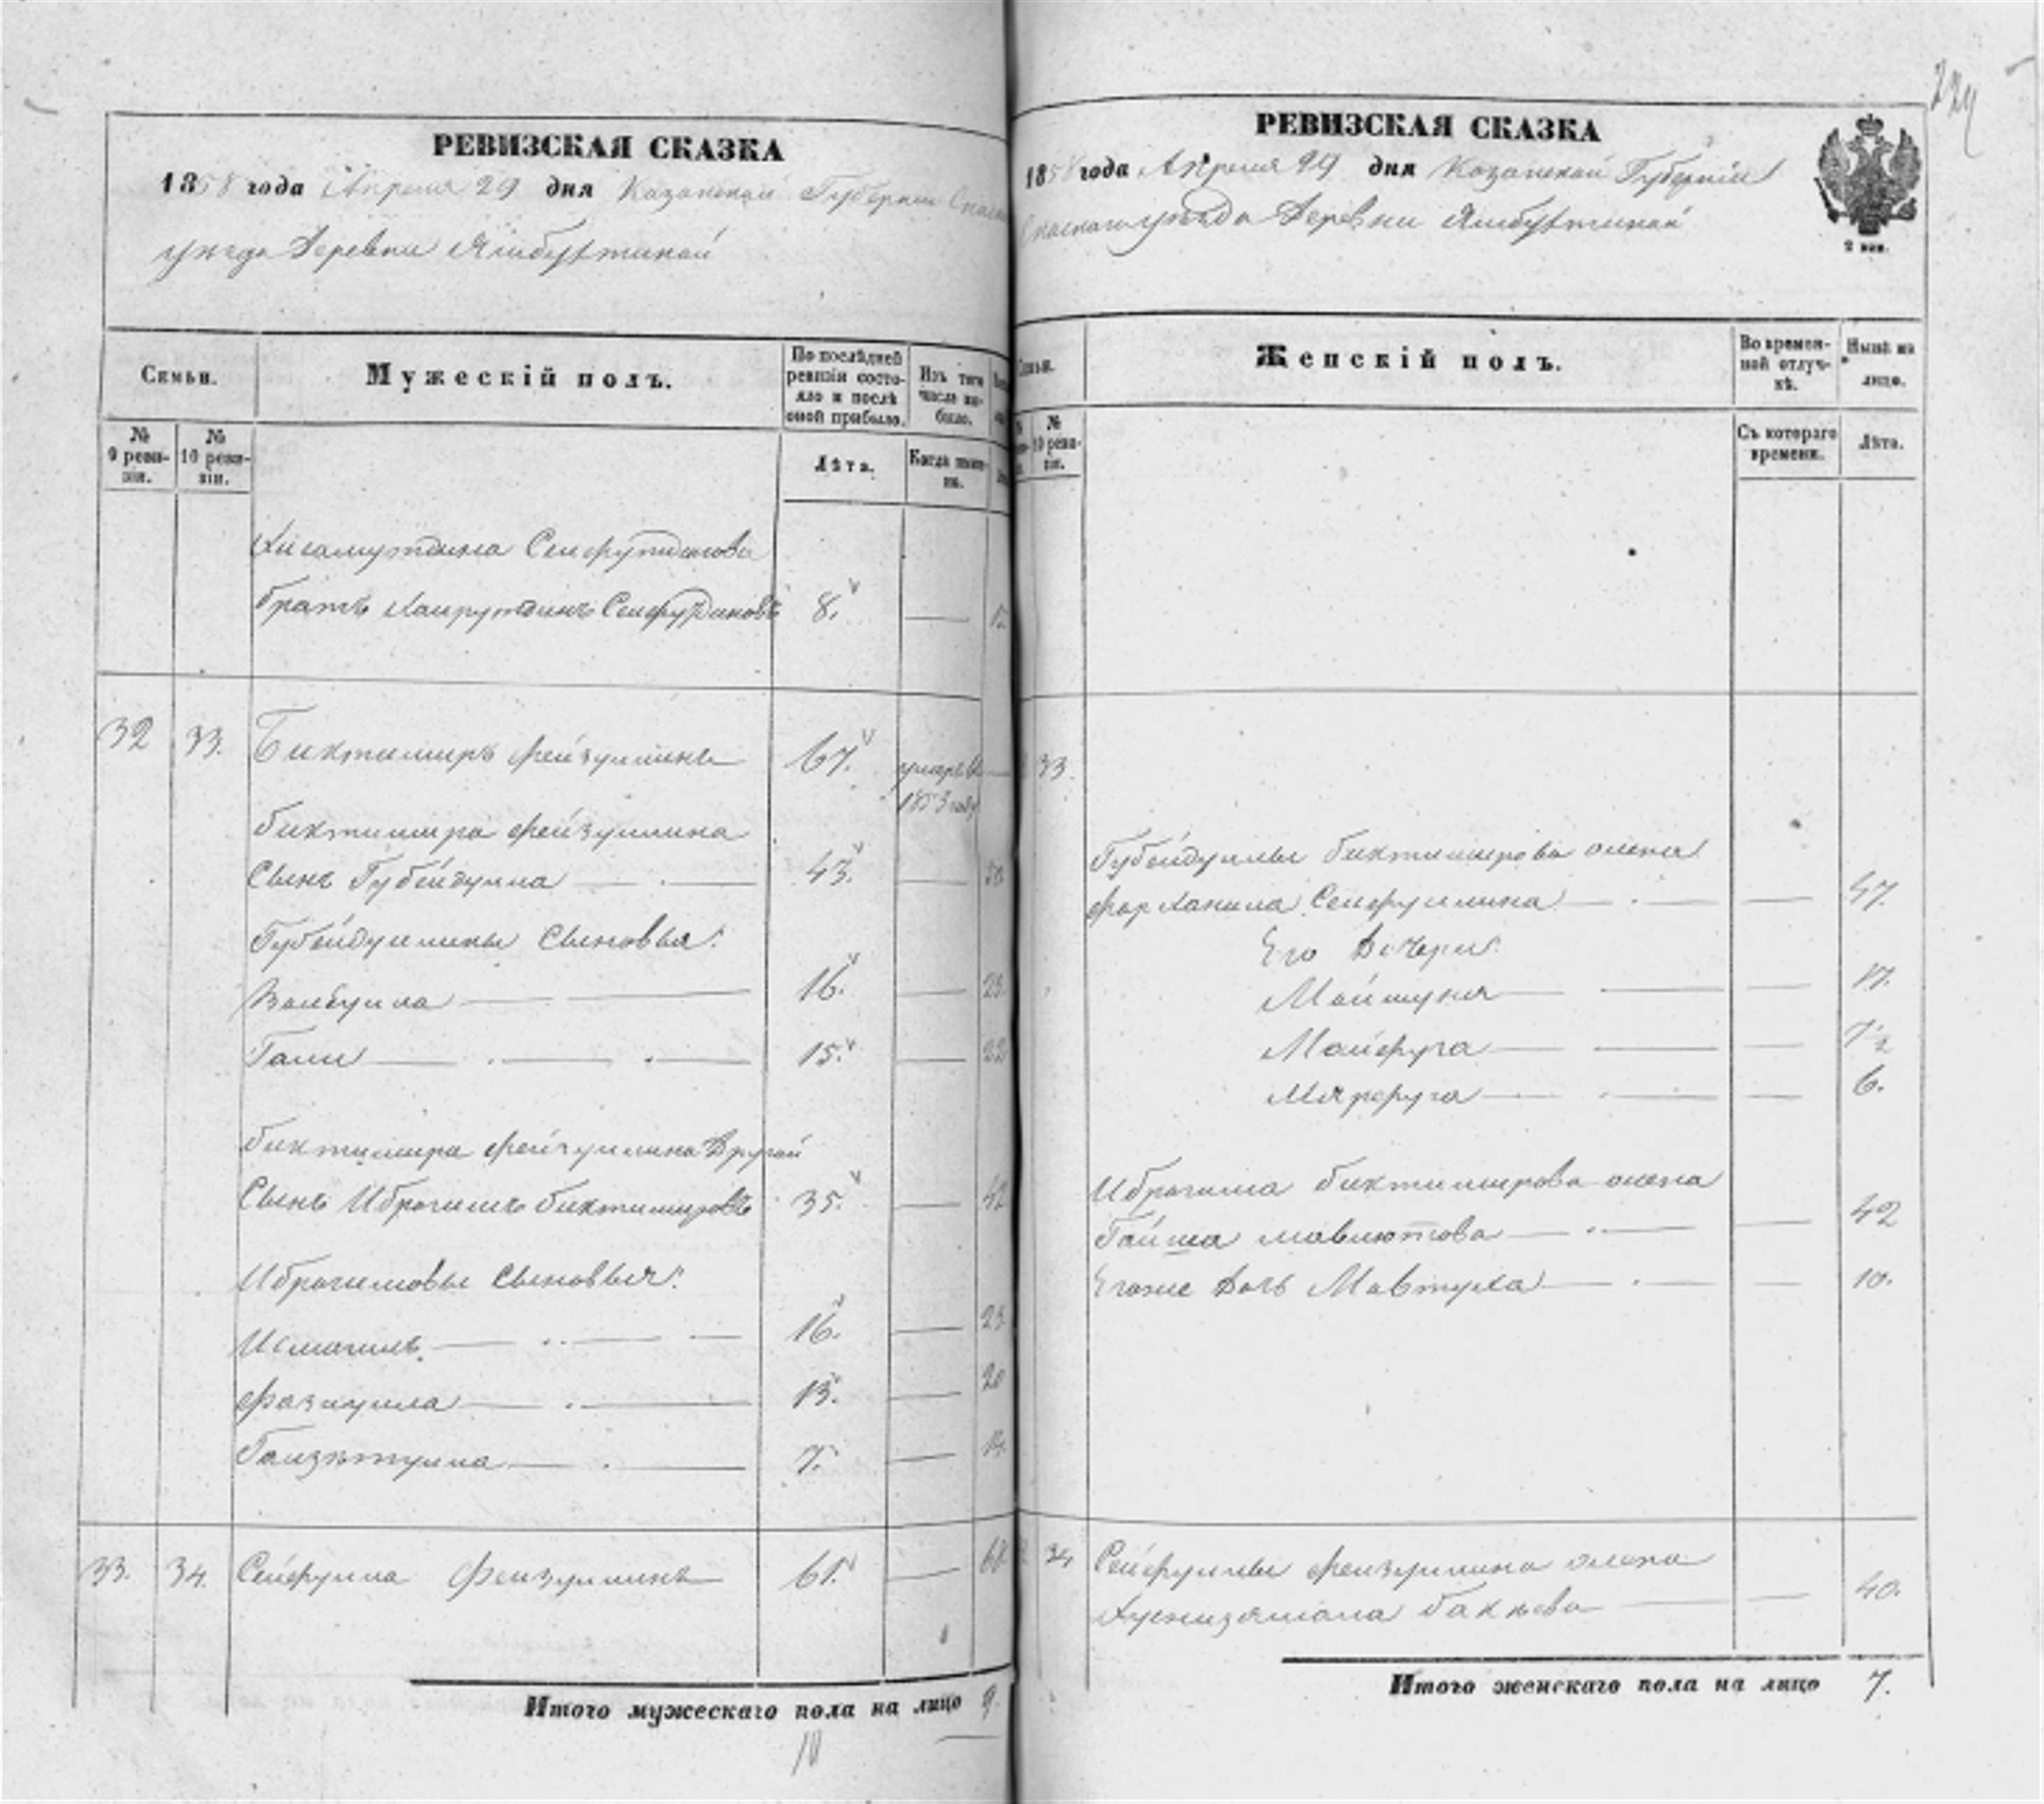 РЕВИЗСКАЯ СКАЗКА
1858 года Апреля 29 дня Казанской Губернии
уезда Деревни Ямбухтиной
Семьи.
Мужескій полъ.
По послѣдней ревизіи состояло и послѣ оной прибыло.
Изъ того числа выбыло.
№ 9 ревизіи.
№ 10 ревизіи.
Лѣта.
Когда именно.
Хисамутдина Сейфутдинова
братъ Хайрутдинъ Сейфутдиновъ 8.
32 33. Биктимиръ Фейзуллинъ 67. умеръ въ
1853 году
Биктимира Фейзуллина
Сынъ Губейдулла 43. 50
Губейдуллины Сыновья:
16. 23.
Гали 15. 22
Биктимира Фейзуллина Другой
Сынъ Ибрагимъ Биктимировъ 35. 42
Ибрагимовы Сыновья:
Исмагилъ 16. 23
Фазлулла 13. 20
7. 14.
33. 34. Сейфулла Фейзуллинъ 61. 68
Итого мужескаго пола на лицо 9.
10
224
РЕВИЗСКАЯ СКАЗКА
1858 года Апреля 29 дня Казанской Губерніи
Спаскаго уезда Деревни Ямбухтиной
2 коп.
Семьи.
Женскій полъ.
Во временной отлучкѣ.
Нынѣ на лицо.
№ 10 ревизіи.
Съ котораго времени.
Лѣта.
33.
Губейдуллы Биктимирова жена
Сейфуллина 47.
Его Дочери:
17.
7 1/2
6.
Ибрагима Биктимирова жена
Гайша Мавлютова 42
Егоже Дочь Мавтуха 10.
34 Сейфуллы Фейзуллина жена
Бакѣева 40.
Итого женскаго пола на лицо 7.